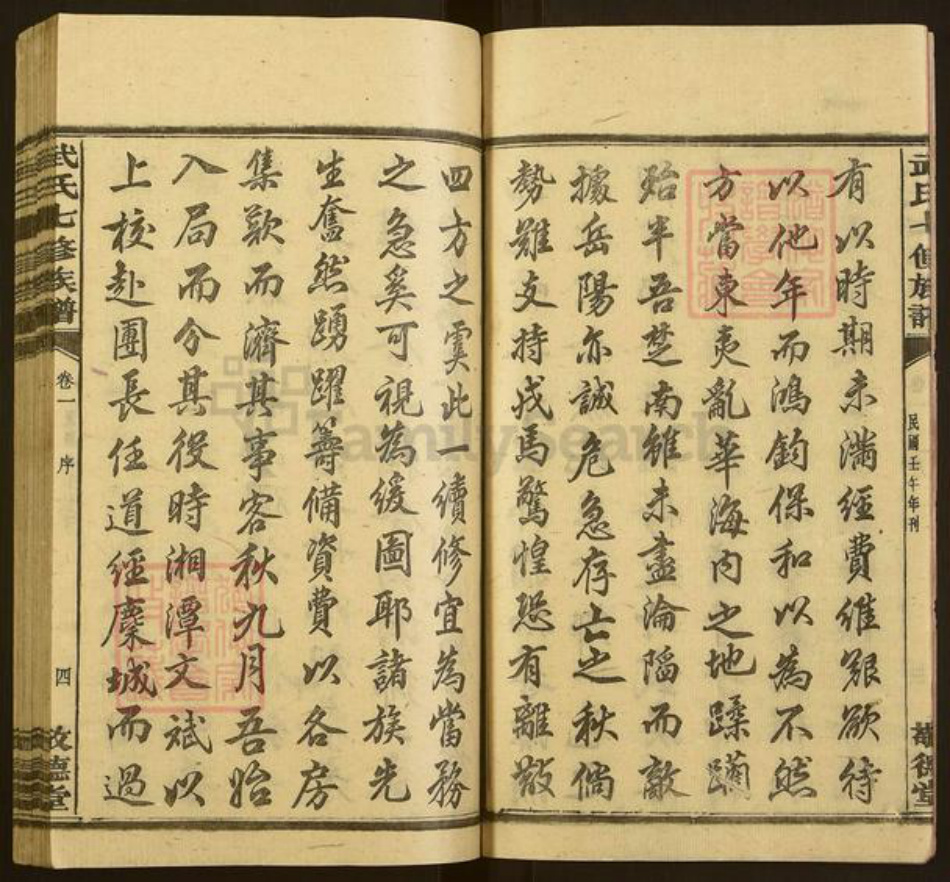 有以時期未滿經費維艱欲待
以他年而鴻鈞保和以為不然
方當東夷亂華海内之地蹂躪
殆半吾楚南雖未盡淪陷而敵
據岳陽亦誠危急存亡之秋倘
勢難支持戎馬驚惶恐有離散
四方之虞此一續修宜為當務
之急奚可視為緩圖耶諸族先
生奮然踴躍籌備資費以各房
集欵而濟其事客秋九月吾始
入局而分其役時湘潭文斌以
上校赴團長任道經麇城而過
武氏七修族譜
民國壬午年刊
武氏七修族譜
卷一
序
四
敬德堂
FamilySearch